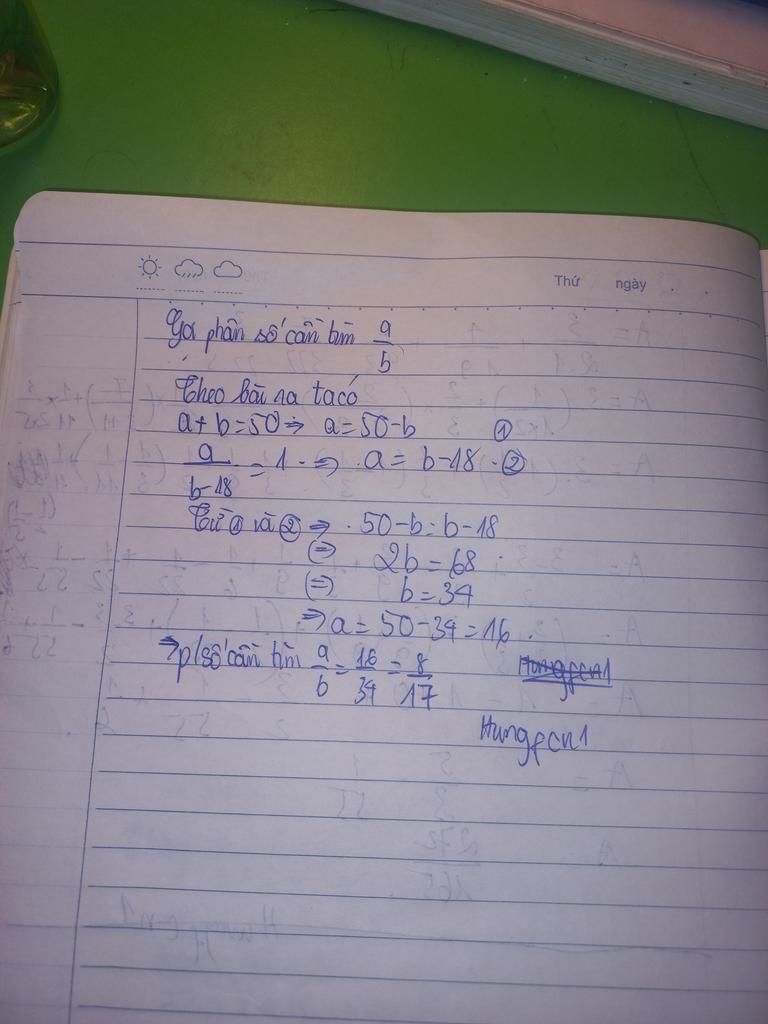 Thứ ngày
Gọi phân số cần tìm a/b
Theo bài ra ta có
a+b=50 => a=50-b ①
a/b-18 = 1 => a= b-18 ②
Từ ① và ② => 50-b=b-18
(=) 2b=68
(=) b=34
=> a= 50-34=16
=> p/số cần tìm a/b = 16/34 = 8/17
Hungfcn1